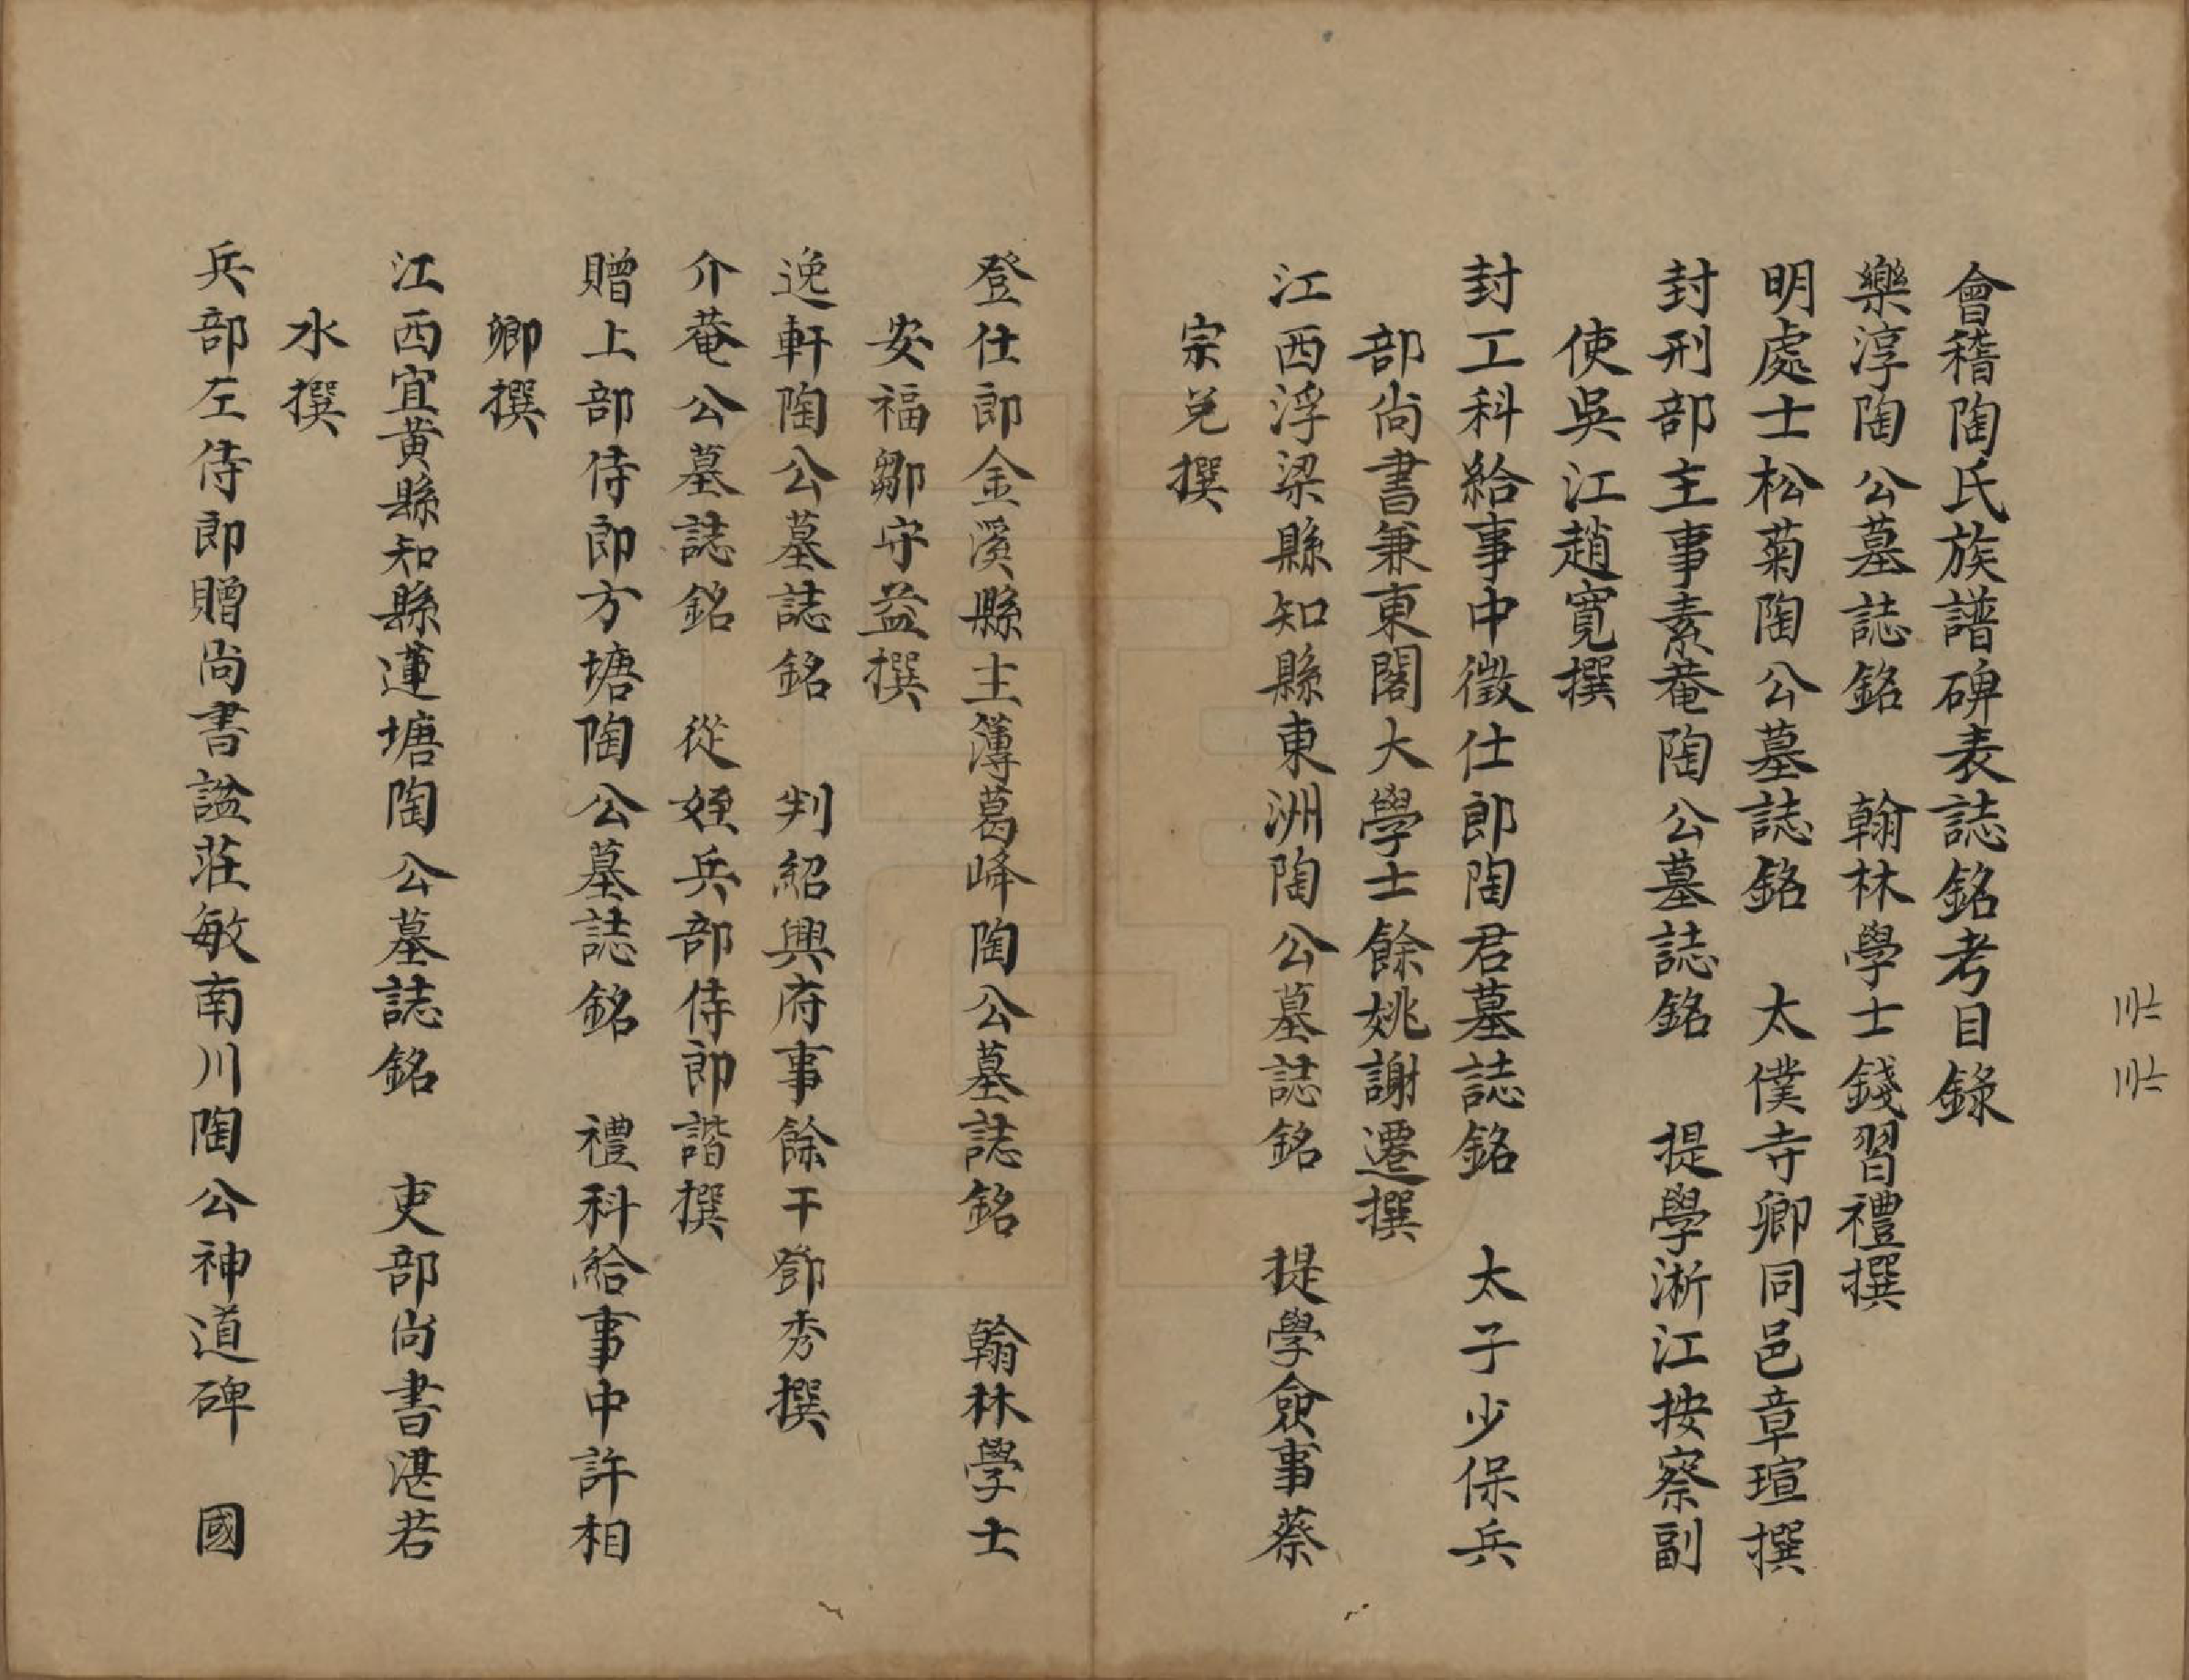 會稽陶氏族譜碑表誌銘考目錄
樂淳陶公墓誌銘　翰林學士錢習禮撰
明處士松菊陶公墓誌銘　太僕寺卿同邑章瑄撰
封刑部主事素菴陶公墓誌銘　提學淅江按察副
使吳江趙寬撰
封工科給事中徵仕郎陶君墓誌銘　太子少保兵
部尚書兼東閣大學士餘姚謝遷撰
江西浮梁縣知縣東洲陶公墓誌銘　提學僉事蔡
宗兗撰
登仕郎金溪縣主簿葛峰陶公墓誌銘　翰林學士
安福鄒守益撰
逸軒陶公墓誌銘　判紹興府事餘干鄧秀撰
介菴公墓誌銘　從姪兵部侍郎諧撰
贈上部侍郎方塘陶公墓誌銘　禮科給事中許相
卿撰
江西宜黃縣知縣蓮塘陶公墓誌銘　吏部尚書湛若
水撰
兵部左侍郎贈尚書謚莊敏南川陶公神道碑　國